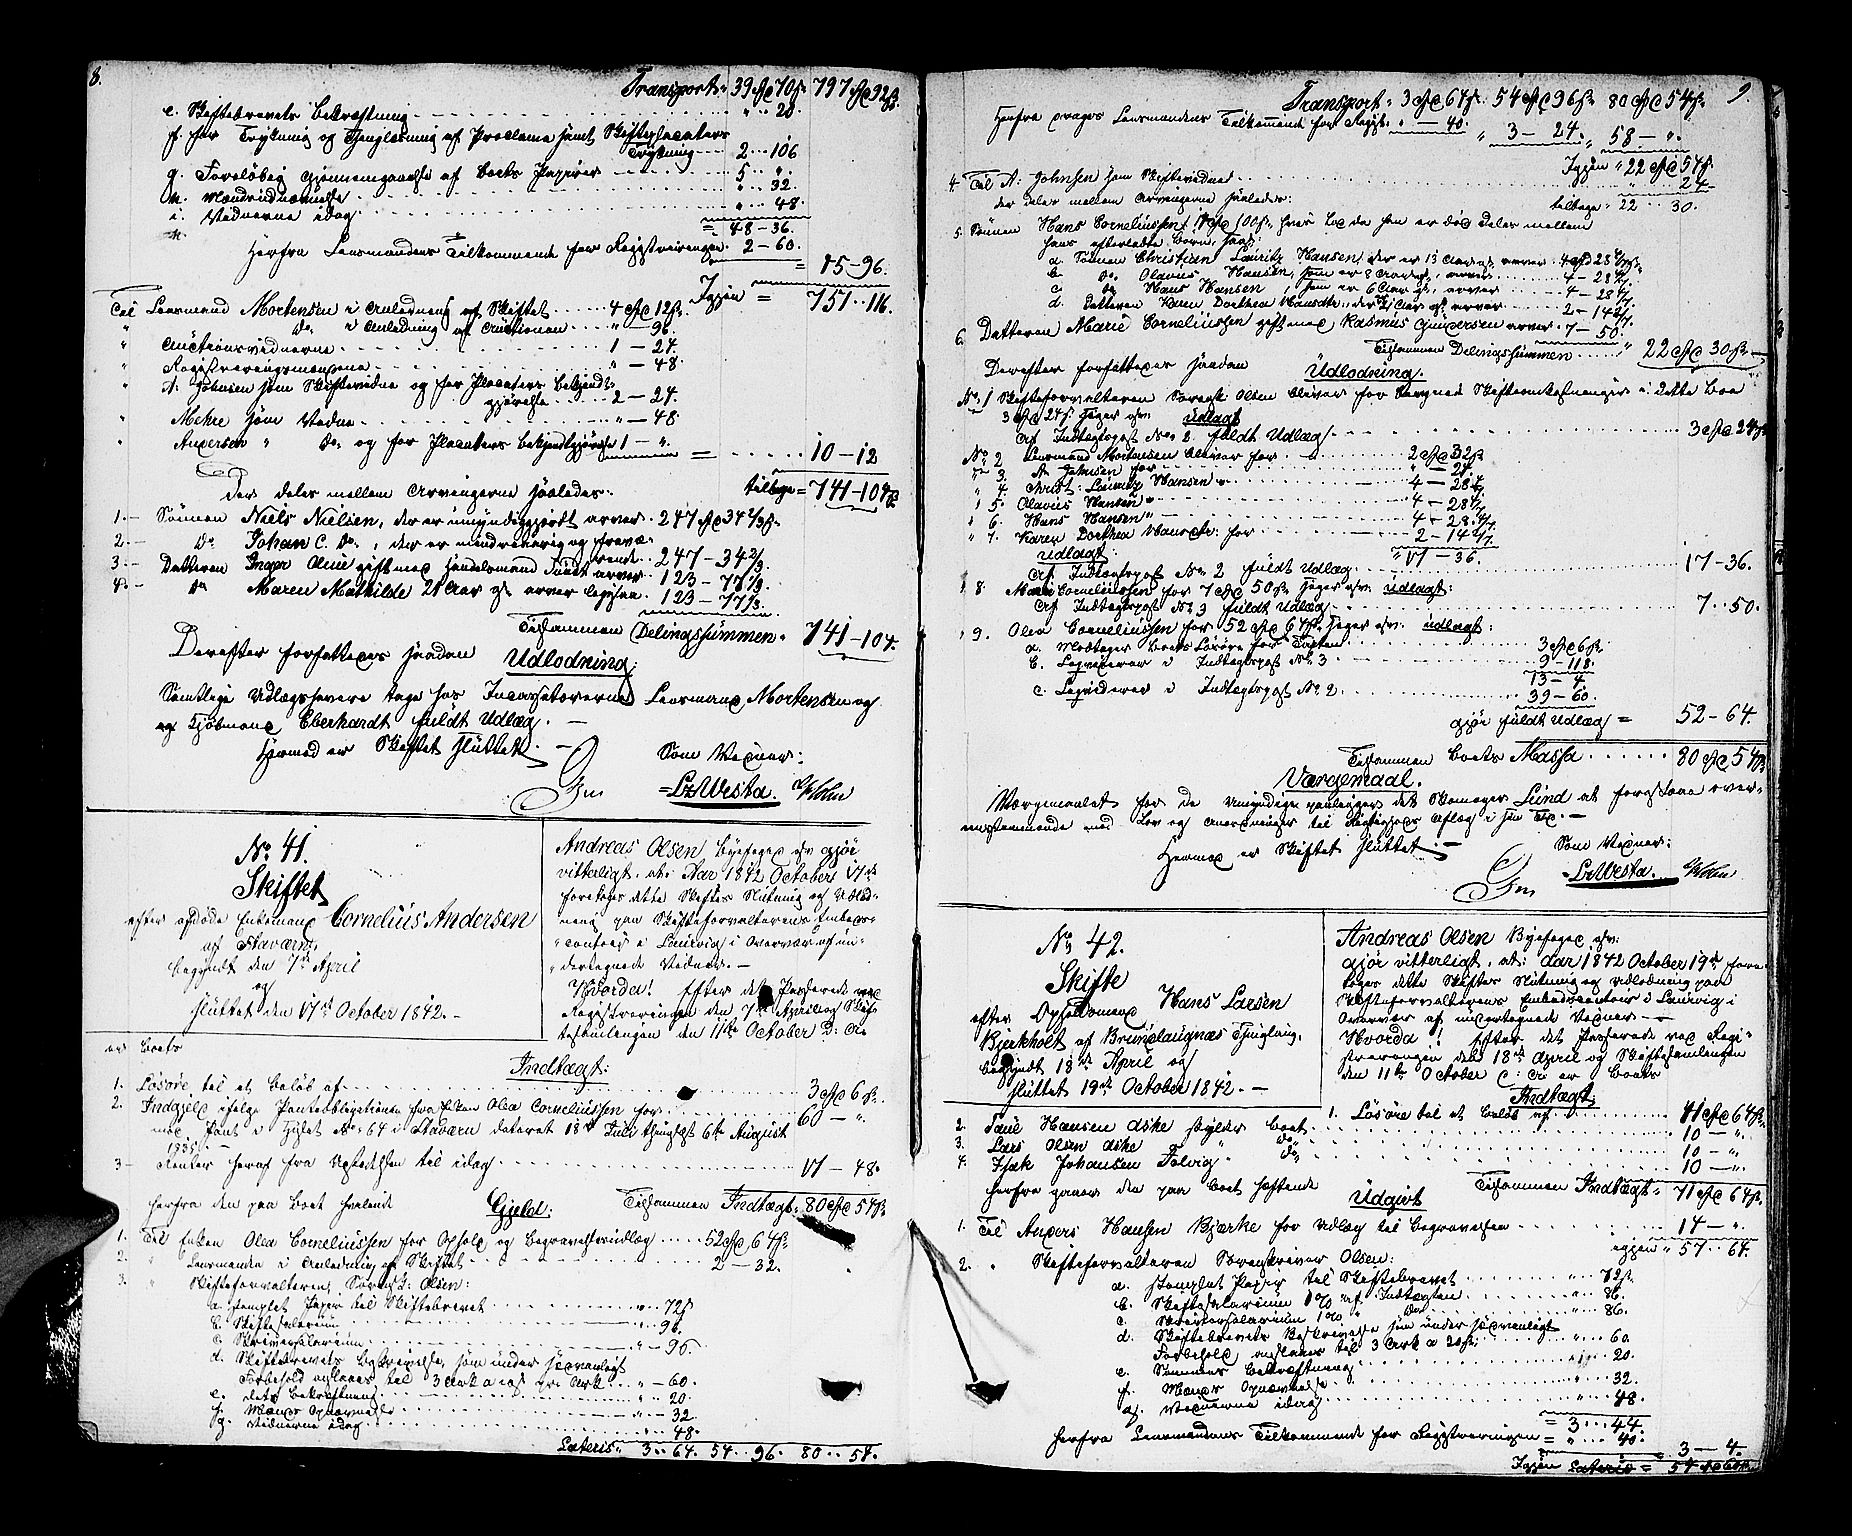 8.
Transport 39 Spd 70 ß 797 Spd 92 ß
e. Skiftebrevets Bekræftning " .. 20.
f. for Trykning og Thinglæsning af Proclama samt Skifteplacaters
Trykning 2 .. 106
g. Foreløbig Gjennemgaaelse af Boets Papirer 5 .. "
h. Mændsudnævnelse " .. 32.
i. Vidnerne idag " .. 48.
= 48 - 36.
Herfra Lensmandens Tilkommende for Registreringen 2 - 60.
= 45 - 96.
Igjen = 751 .. 116.
Til Lensmand Mortensen i Anledning af Skiftet 4 Spd 12 ß
" Do i Anledning af Auctionen " - 96.
" Auctionsvidnerne 1 - 24.
" Registreringsmændene " - 48.
" A. Johnsen som Skiftevidne og for Placaters Bekjendt-
gjørelse 2 - 24.
" Mehre som Vidne " - 48
" Andersen " Do og for Placaters Bekjendtgjørelse 1 - ".
= 10 - 12
tilbage = 741 - 104 ß
Der deles mellem Arvingerne saaledes:
1. - Sønnen Niels Nielsen, der er umyndiggjordt arver 247 Spd 34 2/3 ß
2. - Do Johan C. Do, der er mindreaarig og fravæ-
rende 247 - 34 2/3
3. - Datteren Inger Oline gift med Handelsmand Tundt arver 123 - 77 1/3
4. - Do Maren Mathilde 21 Aar gl. arver ligesaa 123 - 77 1/3
Tilsammen Delingssummen 741 - 104.
Derefter forfattedes saadan Udlodning:
Samtlige Udlægshavere tage hos Incassatorerne Lensmand Mortensen og
og Kjøbmand Eberhardt fuldt Udlæg. -
Hermed er Skiftet sluttet. -
Som Vidner:
Olsen
L. Westa. Holm
No 41.
Skiftet
efter afdøde Enkemand Cornelius Andersen
af Staværn,
begyndt den 7de April
og
sluttet den 17de October 1842. -
Andreas Olsen Byefoged &c. gjør
vitterligt, at: Aar 1842 October 17de
foretoges dette Skiftes Slutning og Udlod-
ning paa Skifteforvalterens Embeds-
contoir i Laurvig i Overvær af un-
dertegnede Vidner. -
Hvorda! Efter det Passerede ved
Registreringen den 7de April og Skif-
tesamlingen den 11te October d: A:
er Boets
Indtægt:
1. Løsøre til et Beløb af 3 Spd 6 ß.
2. Indgjeld ifølge Panteobligation fra Enken Olea Corneliussen for 60 - "
med Pant i Huset No 64 i Staværn dateret 18de Juli thinglæst 6te August
1835
3 - Renter heraf fra Udstedelsen til idag 17 - 48.
Tilsammen Indtægt 80 Spd 54 ß
herfra den paa Boet hvilende Gjeld:
1. Til Enken Olea Corneliussen for Ophold og Begravelsesudlæg 52 Spd 64 ß
2. " Lensmanden i Anledning af Skiftet 2 - 32.
3. " Skifteforvalteren, Sorensk: Olsen:
a. stemplet Papir til Skiftebrevet " .. 72 ß
b. Skiftesalarium " .. 96.
c. Skriversalarium " - 96.
d. Skiftebrevets Beskrivelse, som under sædvanligt
Forbehold anslaaes til 3 Ark a 20 ß pr. Ark " - 60.
e. dets Bekræftning " .. 20
f. Mænds Opnævnelse " - 32
g. Vidnerne idag " .. 48.
Lateris 3 .. 64. 54 .. 96. 80 .. 54.
9.
Transport 3 Spd 64 ß 54 Spd 96 ß 80 Spd 54 ß
Herfra drages Lensmandens Tilkommende for Registr. " - 40.
" 3 - 24. " 58 - ".
Igjen " 22 Spd 54 ß
4. Til A. Johnsen som Skiftevidne 24
tilbage " 22 .. 30.
der deles mellem Arvingerne saaledes:
5. Sønnen Hans Corneliussen hvis Lod da han er død deles mellem
hans efterladte Børn, saa:
a. Sønnen Christian Lauritz Hansen, der er 13 Aar gl. arver 4 Spd 28 4/7 ß
b. Do Olavus Hansen, som er 8 Aar gl., arver 4 - 28 4/7
c. Do Hans Hansen, som er 6 Aar gl., arver 4 - 28 4/7
d. Datteren Karen Dorthea Hansdtr., der Aar gl. arver 2 - 14 2/7
6. Datteren Marie Corneliussen gift med Rasmus Gundersen arver 7 - 50.
Tilsammen Delingssummen " 22 Spd 30 ß
Derefter forfattedes saadan Udlodning.
No 1 Skifteforvalteren Sorensk. Olsen bliver for beregnede Skifteomkostninger i dette Boe
3 Spd 24 ß. Tager &c. Udlagt
Af Indtægtspost No 2. fuldt Udlæg 3 Spd 24 ß
No 2 Lensmand Mortensen bliver for 2 Spd 32 ß
" 3. A. Johnsen for " - 24.
" 4. Christ: Lauritz Hansen " 4 - 28 4/7
" 5. Olavus Hansen " 4 - 28 4/7
" 6. Hans Hansen " 4 - 28 4/7.
" 7. Karen Dorthea Hansdtr. for 2 - 14 2/7
Udlagt: " 17 - 36.
Af Indtægtspost No 2 fuldt Udlæg 17 - 36.
" 8. Marie Corneliussen for 7 Spd 50 ß Tager &c. udlagt:
Af Indtægtspost No 3 fuldt Udlæg 7 .. 50.
" 9. Olea Corneliussen for 52 Spd 64 ß. Tager &c. udlagt:
a. Modtager Boets Løsøre for Taxten 3 Spd 6 ß
b. Liqviderer i Indtægtspost No 3 9 - 118.
13 - 4.
c. Liqviderer i Indtægtspost No 2. 39 - 60.
gjør fuldt Udlæg = 52 - 64.
Tilsammen Boets Massa 80 Spd 54 ß
Værgemaal.
Værgemaalet for de Umyndige paalægges det Skomager Lund at forestaae over-
ensstemmende med Lov og Anordninger til Rigtigheds Aflæg i sin Tid. -
Hermed er Skiftet sluttet. -
Som Vidner:
Olsen
L. Westa. Holm
No 42.
Skifte
efter Opholdsmand Hans Larsen
Bjerkholt af Brunlaugnæs Thinglaug,
begyndt 18de April og
sluttet 19de October 1842. -
Andreas Olsen Byefoged &c.
gjør vitterligt, at: Aar 1842 October 19de fore-
toges dette Skiftes Slutning og Udlodning paa
Skifteforvalterens Embedscontoir i Laurvig i
Overvær af undertegnede Vidner -
Hvorda! Efter det Passerede ved Regi-
streringen den 18de April og Skiftesamlingen
den 11te October d: A: er Boets
Indtægt:
1. Løsøre til et Beløb af 41 Spd 64 ß
2. Paul Hansen Aske skylder Boet 10 - ".
3. Lars Olsen Aske Do 10 - "
4. Isak Johansen Tolvig " Do 10 - ".
Tilsammen Indtægt 71 Spd 64 ß
herfra gaaer den paa Boet hæftende Udgivt
1. Til Anders Hansen Bjerke for Udlæg til Begravelsen 14 - ".
igjen " 57 .. 64.
2. " Skifteforvalteren Sorenskriver Olsen:
a. stemplet Papir til Skiftebrevet " .. 72 ß.
b. Skiftesalarium 1 % af Indtægten " .. 86.
c. Skriversalarium 1 % " Do " .. 86.
d. Skiftebrevets Beskrivelse som under sædvanligt
Forbehold anslaaes til 3 Ark a 20 ß: " .. 60.
e. Sammes Bekræftning " .. 20.
f. Mænds Opnævnelse " .. 32.
g. Vidnerne idag " .. 48.
= 3 .. 44.
herfra Lensmandens Tilkommende for Registreringen = " .. 40.
3 - 4.
Igjen Lateris = 54 Spd 60 ß